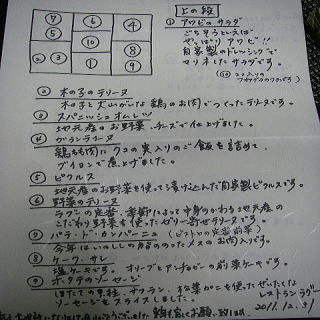 ⑦ ⑥ ④
⑤ ⑩ ⑧
② ③ ① ⑨
上の段
① アワビのサラダ
ごちそうといえば
やっぱりアワビ!!
自家製のドレッシングで
マリネしたサラダです。
② 木の子のテリーヌ
木の子と 鶏のお肉でつくったテリーヌです。
③ スパニッシュオムレツ
地元産のお野菜、チーズで仕上げました。
④ ガランティーヌ
鶏もも肉にクコの実入りのご飯を詰めて
ブイヨンで煮上げました。
⑤ ピクルス
地元産のお野菜を使って漬けこんだ自家製ピクルスです。
⑥ 野菜のテリーヌ
ラグーの定番、季節によって中身のかわる地元産の
こだわり野菜を使ったゼリー寄せテリーヌです。
⑦ パテ・ド・カンパーニュ (ビストロの定番前菜)
今年はいのししの お肉入りです。
⑧ ケーク・サレ
塩ケーキです。オリーブとアンチョビーの前菜ケーキです。
⑨ ホタテのソーセージ
ほたての貝柱、サフラン、 を使ったぜいたくな
ソーセージをスライスしました。
レストラン ラグー
2011.12.31
お願い致します。